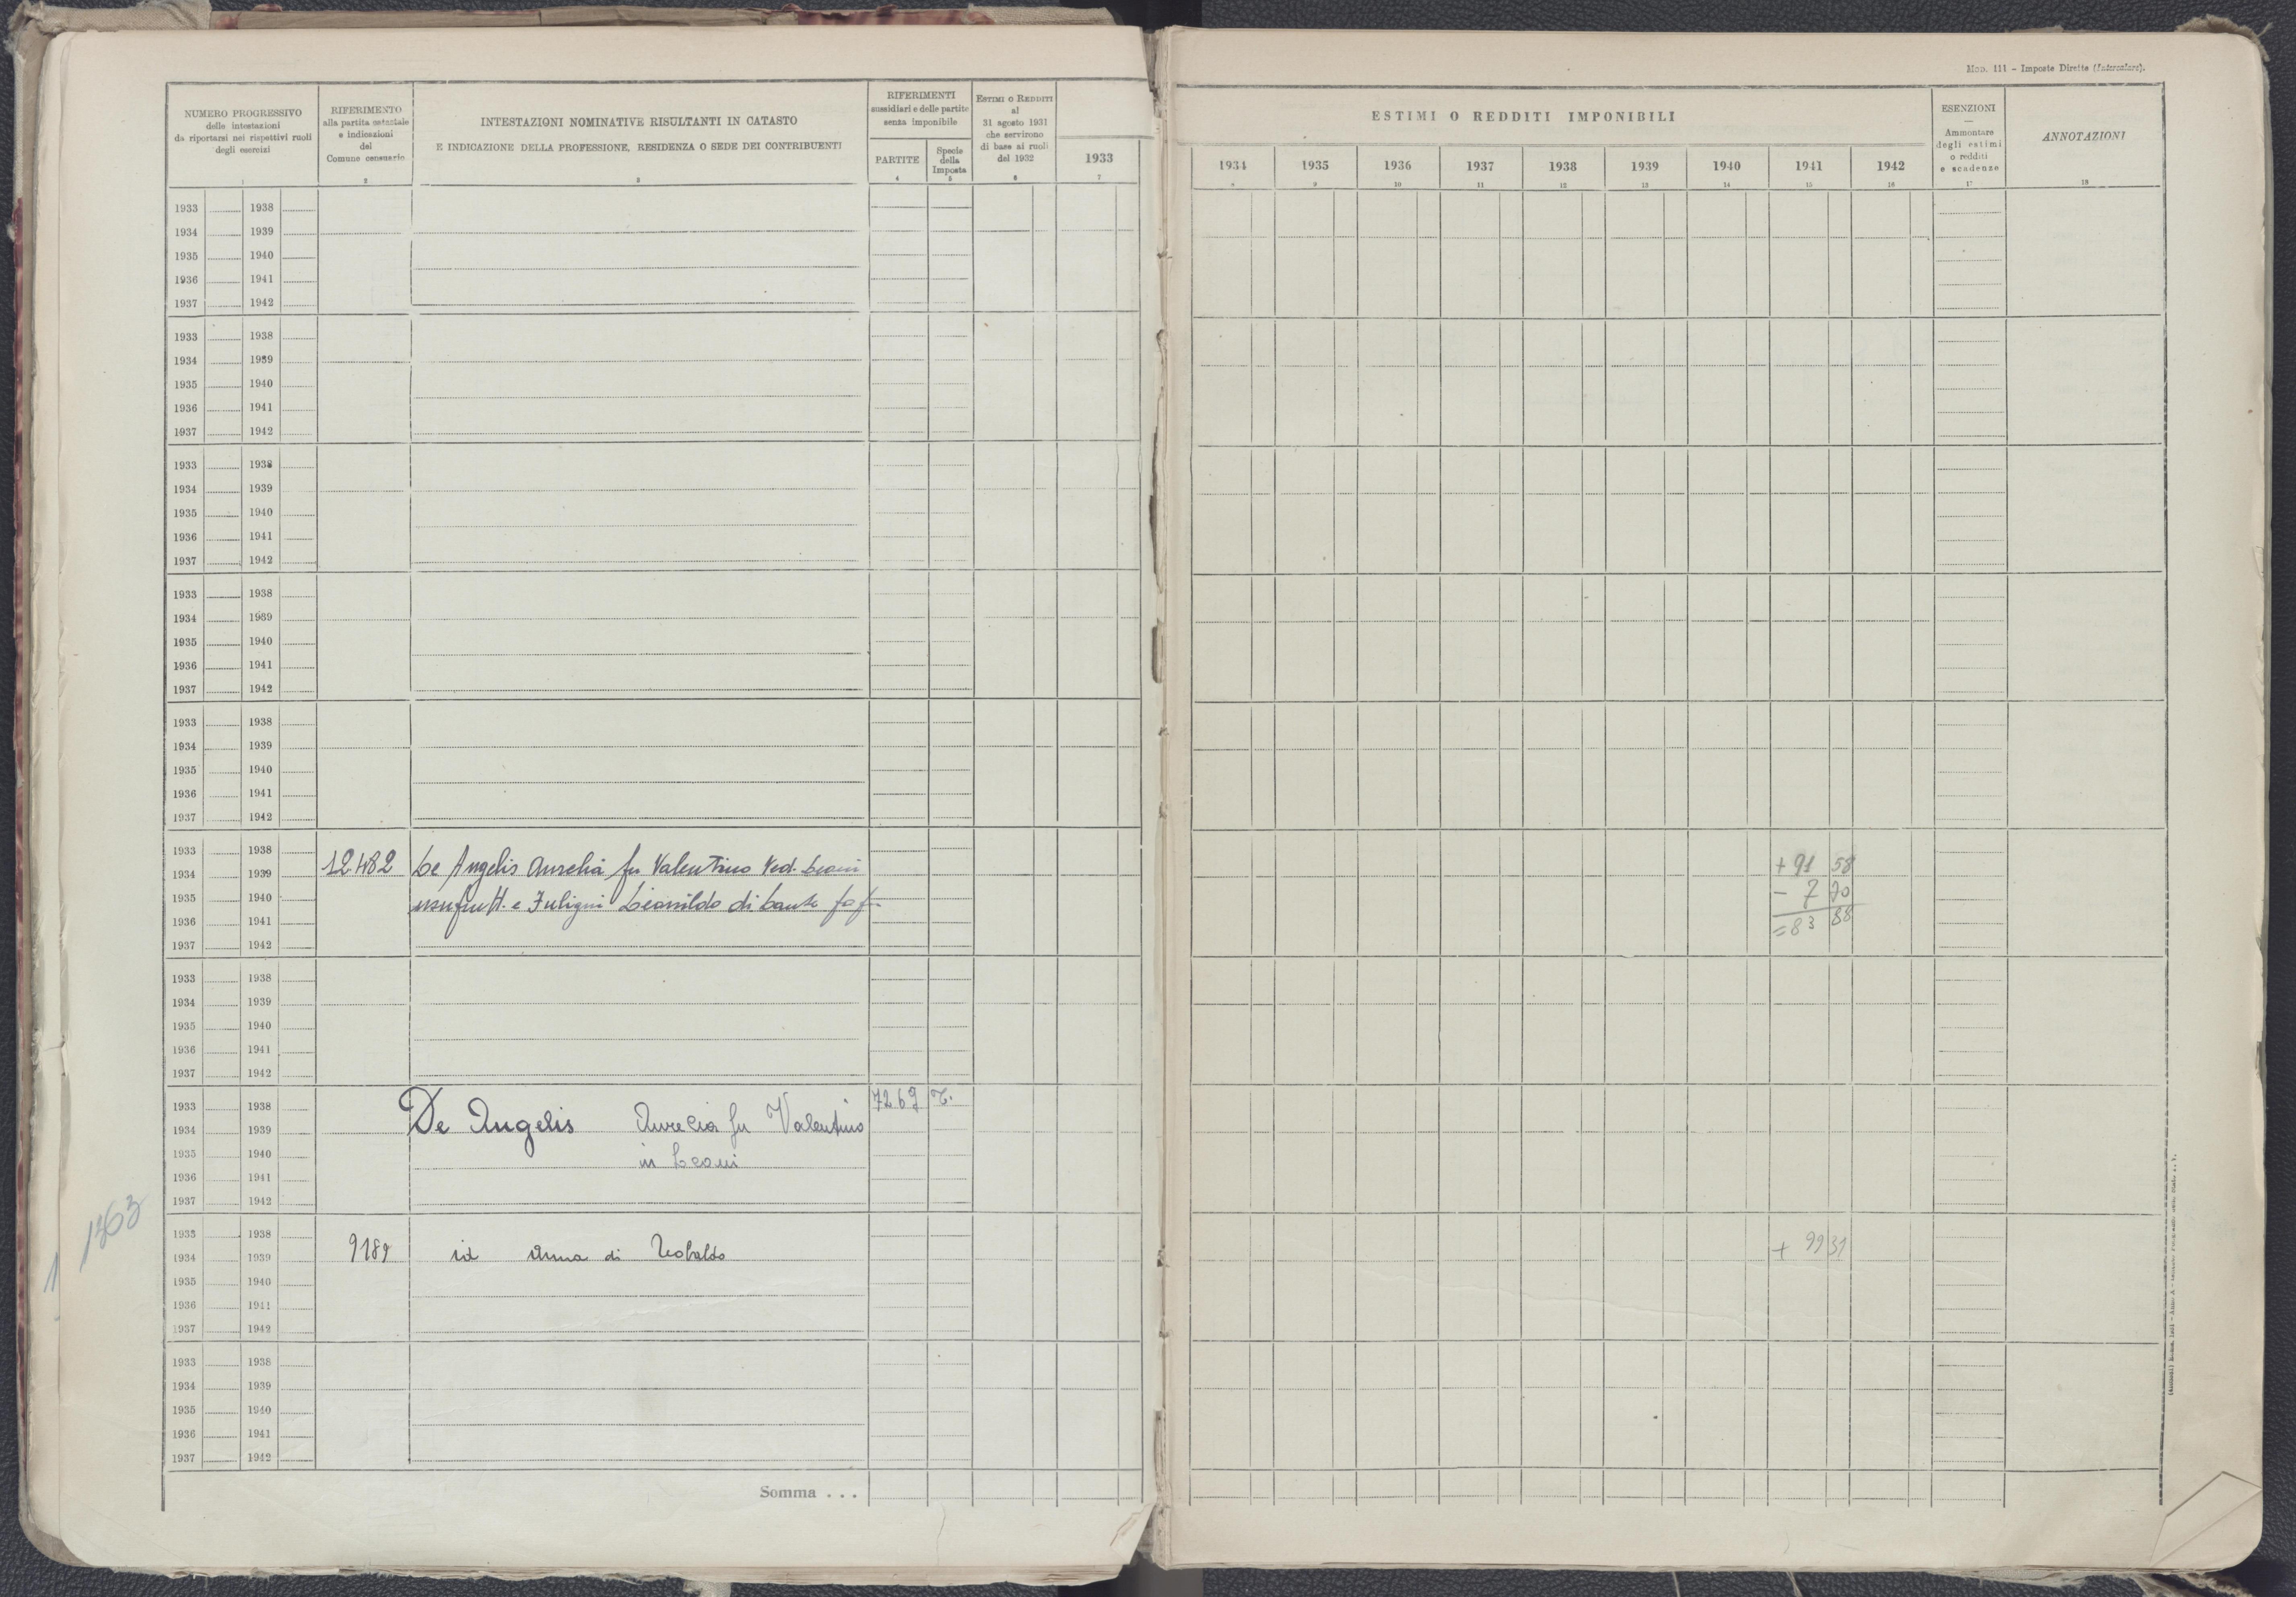 Mod. 111 - Imposte Dirette (Intercalare).
NUMERO PROGRESSIVO
delle intestazioni
da riportarsi nei rispettivi ruoli
degli esercizi
1
RIFERIMENTO
alla partita catastale
e indicazioni
del
Comune censuario
2
INTESTAZIONI NOMINATIVE RISULTANTI IN CATASTO
E INDICAZIONE DELLA PROFESSIONE, RESIDENZA O SEDE DEI CONTRIBUENTI
3
RIFERIMENTI
sussidiari e delle partite
senza imponibile
PARTITE
4
Specie
della
Imposta
5
ESTIMI O REDDITI
al
31 agosto 1931
che servirono
di base ai ruoli
del 1932
6
1933
7
ESTIMI O REDDITI IMPONIBILI
1934 1935 1936 1937 1938 1939 1940 1941 1942
8 9 10 11 12 13 14 15 16
ESENZIONI
Ammontare
degli estimi
o redditi
e scadenze
17
ANNOTAZIONI
18
1933 1938
1934 1939
1935 1940
1936 1941
1937 1942
1933 1938
1934 1939
1935 1940
1936 1941
1937 1942
1933 1938
1934 1939
1935 1940
1936 1941
1937 1942
1933 1938
1934 1939
1935 1940
1936 1941
1937 1942
1933 1938
1934 1939
1935 1940
1936 1941
1937 1942
1933 1938
1934 1939 12482 De Angelis Aurelia fu Valentino Ved. Leoni + 91 58
1935 1940 usufrutt. e Fuligni di - 7 70
1936 1941 = 83 88
1937 1942
1933 1938
1934 1939
1935 1940
1936 1941
1937 1942
1933 1938 7269 T.
1934 1939 De Angelis Aurelia fu Valentino
1935 1940 in Leoni
1936 1941
1937 1942
1933 1938
1934 1939 9189 id Anna di Teobaldo + 99 31
1935 1940
1936 1941
1937 1942
1933 1938
1934 1939
1935 1940
1936 1941
1937 1942
Somma . . .